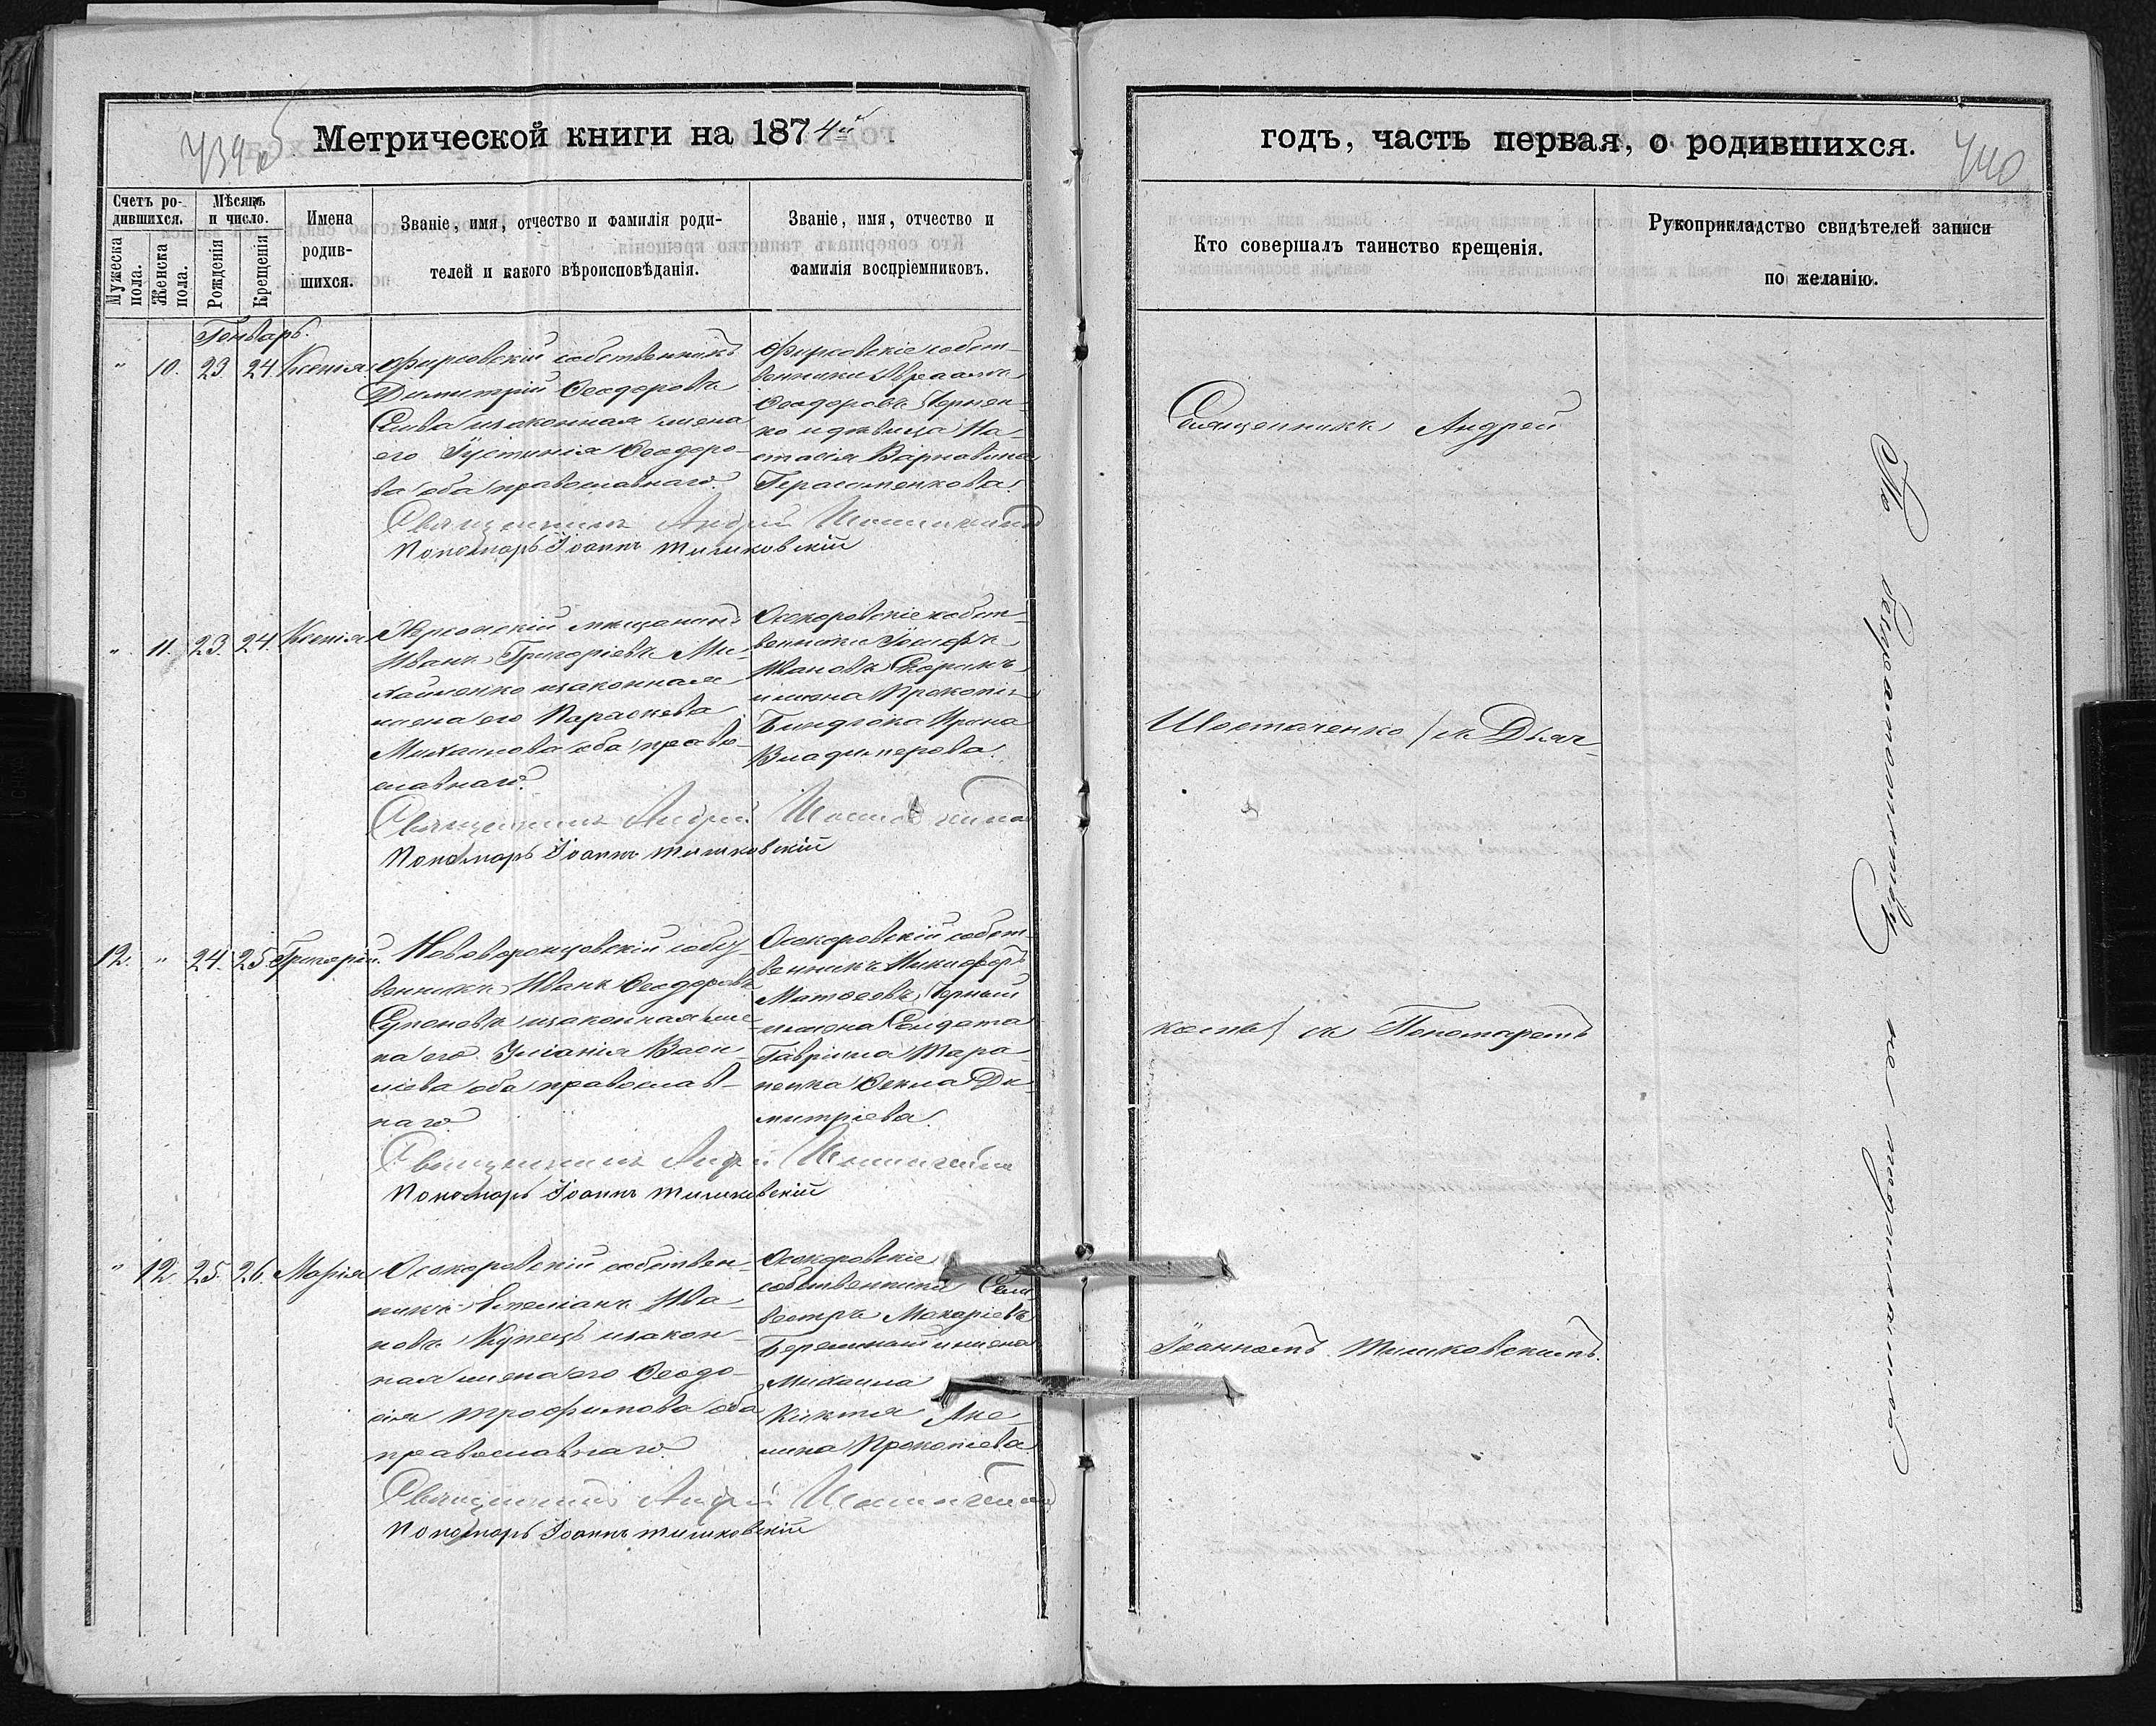 Метрической книги на 1874й
Счетъ ро-
дившихся.
Мужеска
пола.
Женска
пола.
Мѣсяцъ
и число.
Рожденія
Крещенія
Имена
родив-
шихся.
Званіе, имя, отчество и фамилія роди-
телей и какого вѣроисповѣданія.
Званіе, имя, отчество и
фамилія воспріемниковъ.
Генварь.
" 10. 23. 24. Ксенія
Фирсовскій собственникъ
Димитрій Ѳеодоровъ
законная жена
его Іустинія Ѳеодоро-
ва оба православнаго.
Фирсовскіе собст-
венники Авраамъ
Ѳеодоровъ Чернен-
ко и дѣвица На-
стасія Варнавина
Герасименкова.
Священникъ Андрей
Пономарь Іоаннъ Тишковскій
" 11. 23. 24. Ксенія
Херсонскій мѣщанинъ
Иванъ Григоріевъ Ми-
хайленко и законная
жена его Параскева
Михаилова оба право-
славнаго.
Осокоровскіе собст-
венники Іосифъ
Ивановъ Скорикъ
и жена Прокопія
Ирина
Владимерова.
Священникъ Андрей
Пономарь Іоаннъ Тишковскій
12. " 24. 25. Григорій.
Нововоронцовскій собст-
венникъ Иванъ Ѳеодоровъ
Супоновъ и законная же-
на его Іуліанія Васи-
ліева оба православ-
наго.
Осокоровскій собст-
венникъ Никифоръ
Матѳеевъ Черный
и жена Солдата
Гавріила Тара-
ненка Ѳекла Ди-
митріева.
Священникъ Андрей
Пономарь Іоаннъ Тишковскій
" 12. 25. 26. Марія
Осокоровскій собствен-
никъ Стеѳанъ Ива-
новъ Купецъ и закон-
ная жена его Ѳеодо-
сія Трофимова оба
православнаго.
Осокоровскіе
собственники Силь-
вестръ Макаріевъ
Бережный и жена
Михаила
Киктя Аке-
лина Прокопіева.
Священникъ Андрей
Пономарь Іоаннъ Тишковскій
годъ, часть первая, о родившихся.
440
Кто совершалъ таинство крещенія.
Рукоприкладство свидѣтелей записи
по желанію.
Священникъ Андрей
Шостаченко съ Дьяч-
комъ съ Пономаремъ
Іоанномъ Тишковскимъ.